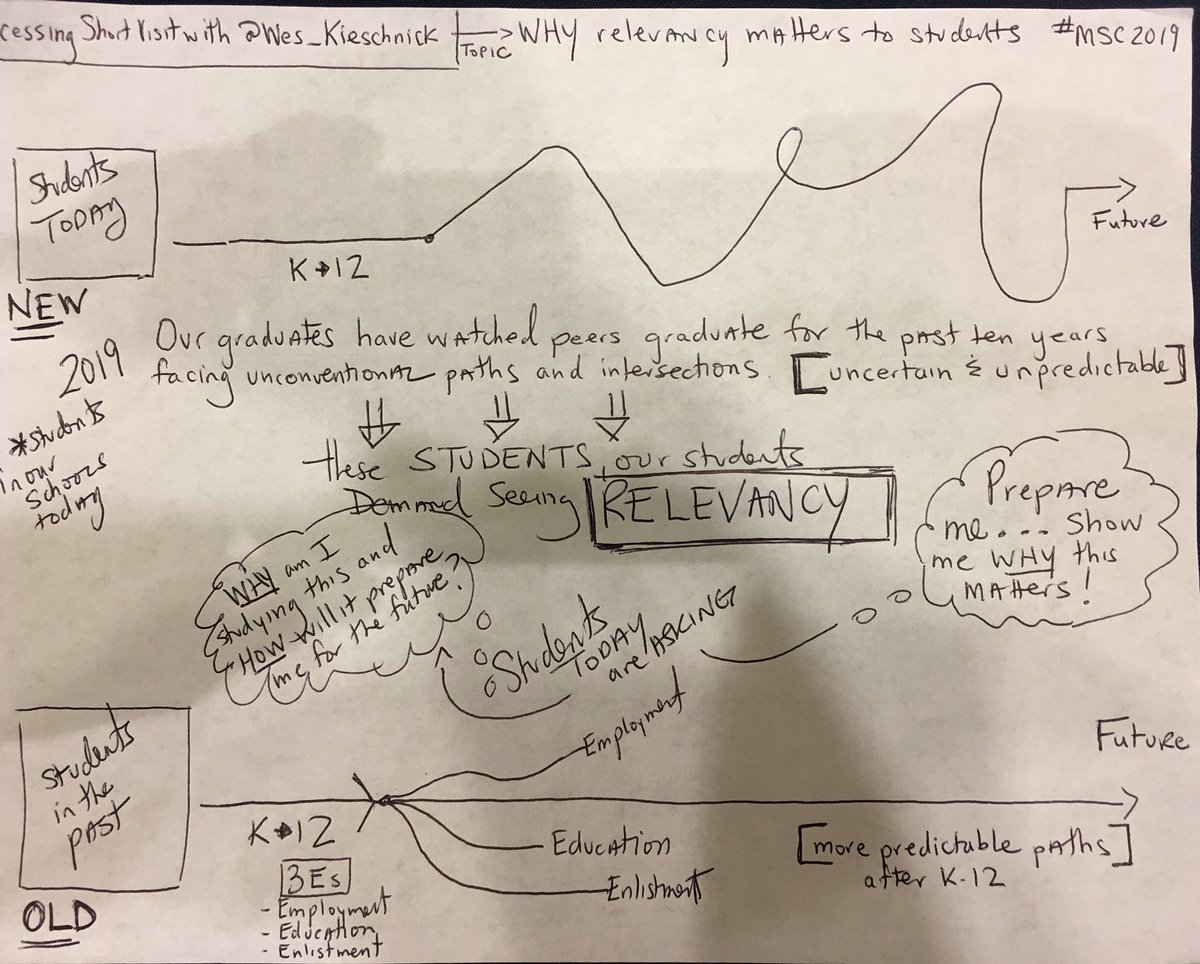 cessing Short Visit with @Wes_Kieschnick
TOPIC
WHY relevancy matters to students #MSC2019
Students
TODAY
K→12
Future
NEW
2019
*Students
in our
Schools
today
Our graduates have watched peers graduate for the past ten years
facing unconventional paths and intersections. [uncertain & unpredictable]
these STUDENTS, our students
Demand Seeing RELEVANCY
WHY am I
studying this and
HOW will it prepare
me for the future?
Prepare
me.... Show
me WHY this
matters!
Students
TODAY
are ASKING
Students
in the
PAST
OLD
K→12
3Es
- Employment
- Education
- Enlistment
Employment
Education
Enlistment
Future
[more predictable paths]
after K-12